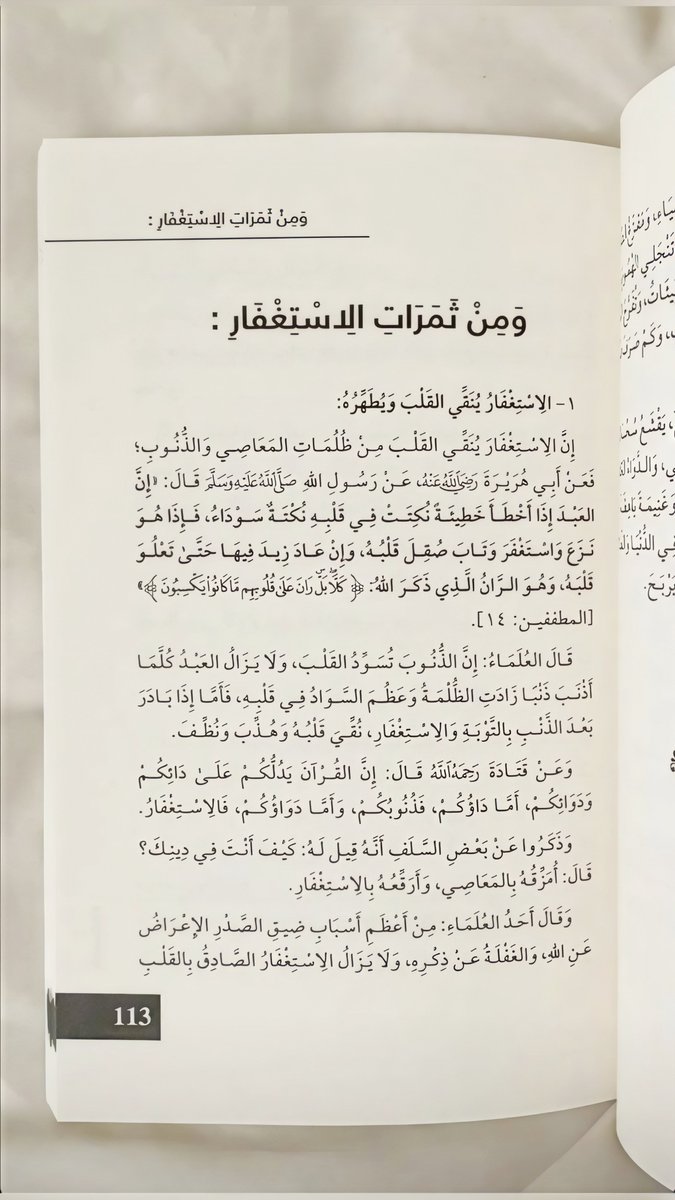 وَمِنْ ثَمَرَاتِ الِاسْتِغْفَارِ :
وَمِنْ ثَمَرَاتِ الِاسْتِغْفَارِ :
١- الِاسْتِغْفَارُ يُنَقِّي القَلْبَ وَيُطَهِّرُهُ:
إِنَّ الِاسْتِغْفَارَ يُنَقِّي القَلْبَ مِنْ ظُلُمَاتِ المَعَاصِي وَالذُّنُوبِ؛
فَعَنْ أَبِي هُرَيْرَةَ رَضِيَاللَّهُعَنْهُ، عَنْ رَسُولِ اللهِ صَلَّىاللَّهُعَلَيْهِوَسَلَّمَ قَالَ: «إِنَّ
العَبْدَ إِذَا أَخْطَأَ خَطِيئَةً نُكِتَتْ فِي قَلْبِهِ نُكْتَةٌ سَوْدَاءُ، فَإِذَا هُوَ
نَزَعَ وَاسْتَغْفَرَ وَتَابَ صُقِلَ قَلْبُهُ، وَإِنْ عَادَ زِيدَ فِيهَا حَتَّىٰ تَعْلُوَ
قَلْبَهُ، وَهُوَ الرَّانُ الَّذِي ذَكَرَ اللهُ: ﴿كَلَّا ۖ بَلْ ۜ رَانَ عَلَىٰ قُلُوبِهِم مَّا كَانُوا۟ يَكْسِبُونَ﴾»
[المطففين: ١٤].
قَالَ العُلَمَاءُ: إِنَّ الذُّنُوبَ تُسَوِّدُ القَلْبَ، وَلَا يَزَالُ العَبْدُ كُلَّمَا
أَذْنَبَ ذَنْبًا زَادَتِ الظُّلْمَةُ وَعَظُمَ السَّوَادُ فِي قَلْبِهِ، فَأَمَّا إِذَا بَادَرَ
بَعْدَ الذَّنْبِ بِالتَّوْبَةِ وَالِاسْتِغْفَارِ، نُقِّيَ قَلْبُهُ وَهُذِّبَ وَنُظِّفَ.
وَعَنْ قَتَادَةَ رَحِمَهُاللَّهُ قَالَ: إِنَّ القُرْآنَ يَدُلُّكُمْ عَلَىٰ دَائِكُمْ
وَدَوَائِكُمْ، أَمَّا دَاؤُكُمْ، فَذُنُوبُكُمْ، وَأَمَّا دَوَاؤُكُمْ، فَالِاسْتِغْفَارُ.
وَذَكَرُوا عَنْ بَعْضِ السَّلَفِ أَنَّهُ قِيلَ لَهُ: كَيْفَ أَنْتَ فِي دِينِكَ؟
قَالَ: أُمَزِّقُهُ بِالمَعَاصِي، وَأَرَقِّعُهُ بِالِاسْتِغْفَارِ.
وَقَالَ أَحَدُ العُلَمَاءِ: مِنْ أَعْظَمِ أَسْبَابِ ضِيقِ الصَّدْرِ الإِعْرَاضُ
عَنِ اللهِ، وَالغَفْلَةُ عَنْ ذِكْرِهِ، وَلَا يَزَالُ الِاسْتِغْفَارُ الصَّادِقُ بِالقَلْبِ
113